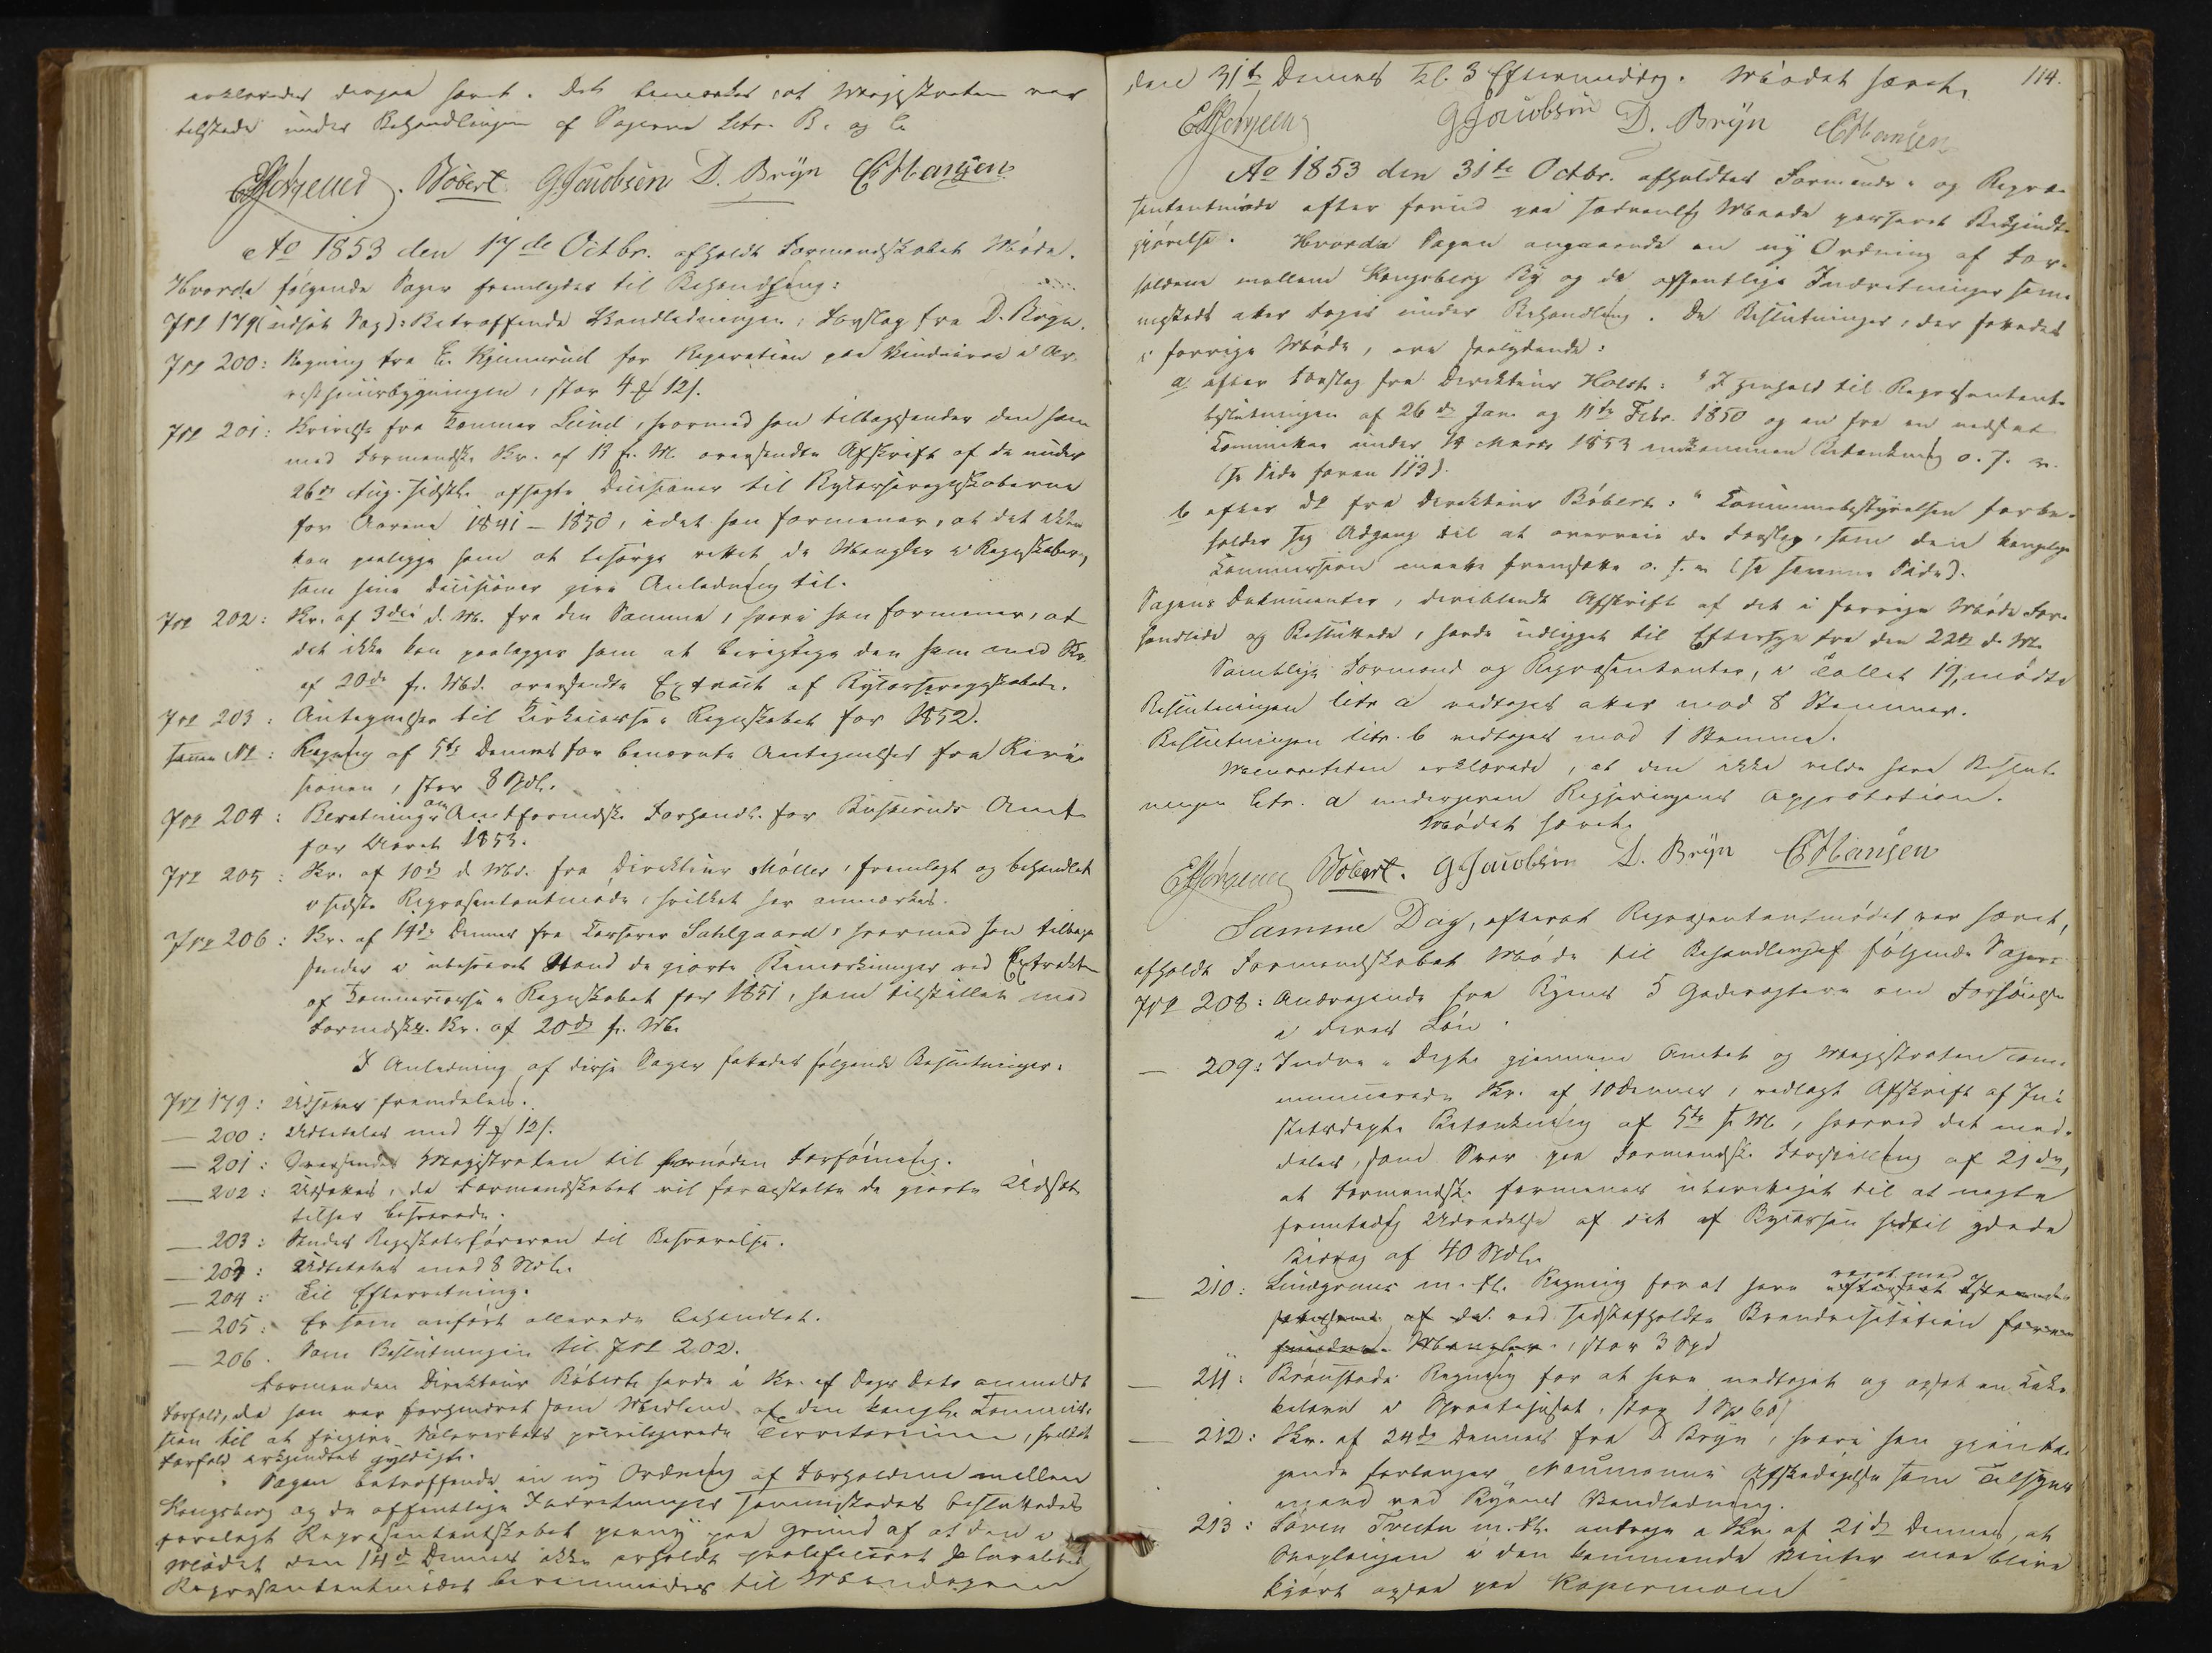 erklæredes derpaa hævet. Det bemærkes, at Magistraten var
tilstede under Behandlingen af Sagerne Litr. B. og C.
Böbert. G Jacobsen D. Brÿn C Hansen
Ao 1853 den 17de Octbr. afholdt Formandskabet Møde.
Hvorda følgende Sager fremlagdes til Behandling:
Jrl 179 (udsat Sag): Betræffende Vandledningen, Forslag fra D. Bryn.
Jrl 200: Regning fra for Reparation paa Vinduerne i Ar-
resthuusbygningen, stor 4 12 s.
Jrl 201: Skrivelse fra Kæmner Lund, hvormed han tilbagesender den ham
med Formandsk. Skr. af 13 f. M. oversendte Afskrift af de under
26de Aug. sidstl. afsagte Decisioner til Bycasseregnskaberne
for Aarene 1841 – 1850, idet han formener, at det ikke
kan paaligge ham at besørge rettet de Mangler i Regnskaberne,
som hine Decisioner give Anledning til.
Jrl 202: Skr. af 3die d. M. fra den Samme, hvori han formener, at
det ikke kan paalægges ham at berigtige den ham med Skr.
af 20de f. Md. oversendte Extract af Bycasseregnskabet.
Jrl 203: Antegnelser til Kirkecasse-Regnskabet for 1852.
samme Nr: Regning af 5te Dennes for benævnte Antegnelser fra Revi-
sionen, stor 8 Spdl.
Jrl 204: Beretning om Amtformdsk. Forhandl. for Buskeruds Amt
for Aaret 1853.
Jrl 205: Skr. af 10de d. Md. fra Direkteur Møller, fremlagt og behandlet
i sidste Repræsentantmøde, hvilket her anmærkes.
Jrl 206: Skr. af 14de Dennes fra Kasserer Sahlgaard, hvormed han tilbage-
sender i ubesvaret Stand de gjorte Bemærkninger ved Extrakten
af Kæmnercasse-Regnskabet for 1851, ham tilstillet med
Formdsk. Skr. af 20de f. M.
I Anledning af disse Sager fattedes følgende Beslutninger:
Jrl 179: Udsættes fremdeles.
— 200: Udbetales med 4 12 s.
— 201: Oversendes Magistraten til fornøden Forføining.
— 202: Udsættes, da Formandskabet vil foranstalte de gjorte Udsæt-
telser besvarede.
— 203: Sendes Regnskabsføreren til Besvarelse.
— 203: Udbetales med 8 Spdl.
— 204: Til Efterretning.
— 205: Er som anført allerede behandlet.
— 206. Som Beslutningen til Jrl 202.
Formanden Direkteur Böbert havde i Skr. af Dags Dato anmeldt
Forfald, da han var forhindret som Medlem af den kongl. Commis-
sion til at frigive Sølvverkets privilegerede Territorium, hvilket
Forfald erkjendtes gyldigt.
Sagen betræffende en ny Ordning af Forholdene mellem
Kongsberg og de offentlige Indretninger sammesteds besluttedes
forelagt Repræsentantskabet paany paa Grund af at den i
Mødet den 14de Dennes ikke erholdt qvalificeret Pluralitet.
Repræsentantmødet berammedes til Mandagen
114.
den 31te Dennes Kl. 3 Eftermiddag. Mødet hævet.
G Jacobsen D. Brÿn C Hansen
Ao 1853 den 31te Octbr. afholdtes Formands- og Repræ-
sentantmøde efter forud paa sædvanlig Maade passeret Bekjendt-
gjørelse. Hvorda Sagen angaaende en ny Ordning af For-
holdene mellem Kongsberg By og de offentlige Indretninger sam-
mesteds atter toges under Behandling. De Beslutninger, der fattedes
i forrige Møde, ere saalydende:
a. efter Forslag fra Direkteur Holst: "I Henhold til Repræsentant-
beslutningen af 26de Jan. og 11te Febr. 1850 og en fra en nedsat
Committee under 14 Marts 1853 indkommen Betænkning o. s. v.
(se Side foran 113).
b efter do fra Direkteur Böbert: "Communebestyrelsen forbe-
holder sig Adgang til at overveie de Forslag, som den kongelige
Commission maatte fremsætte o. s. v (se samme Side).
Sagens Dokumenter, deriblandt Afskrift af det i forrige Møde For-
handlede og Besluttede, havde udligget til Eftersyn fra den 22de d. M.
Samtlige Formænd og Repræsentanter, i Tallet 19, mødte
Beslutningen Litr a vedtoges atter mod 8 Stemmer.
Beslutningen Litr. b vedtoges mod 1 Stemme.
Minoriteten erklærede, at den ikke vilde have Beslut-
ningen Litr. a undergiven Regjeringens Approbation.
Mødet hævet.
Böbert. G Jacobsen D. Brÿn C Hansen
Samme Dag, efterat Repræsentantmødet var hævet,
afholdt Formandskabet Møde til Behandling af følgende Sager:
Jrl 208: Andragende fra Byens 5 Gadevægtere om Forhøielse
i deres Løn.
— 209: Indre-Depts gjennem Amtet og Magistraten com-
municerede Skr. af 10 Dennes, vedlagt Afskrift af Ju-
stitsdepts Betænkning af 5te s. M., hvorved det med-
deles, som Svar paa Formandsk. Forespørgsel af 21de,
at Formandsk. formenes uberettiget til at nægte
fremtidig Udredelse af det af Bycassen hidtil ydede
Bidrag af 40 Spdl.
— 210: Lindgrens m. Fl. Regning for at have været med
af det ved sidstafholdte Brandvisitation
Mangler, stor 3 Spd
— 211: Brønsteds Regning for at have nedtaget og opsat en Kak-
kelovn i Sprøitehuset, stor 1 Sp 60 s
— 212: Skr. af 24de Dennes fra D Bryn, hvori han gjenta-
gende forlanger Naumanns Afskedigelse som Tilsyns-
mand ved Byens Vandledning.
— 213: Søren Tveten m. Fl. andrage i Skr. af 21de Dennes, at
Sneplougen i den kommende Vinter maa blive
kjørt ogsaa paa Kapermoen